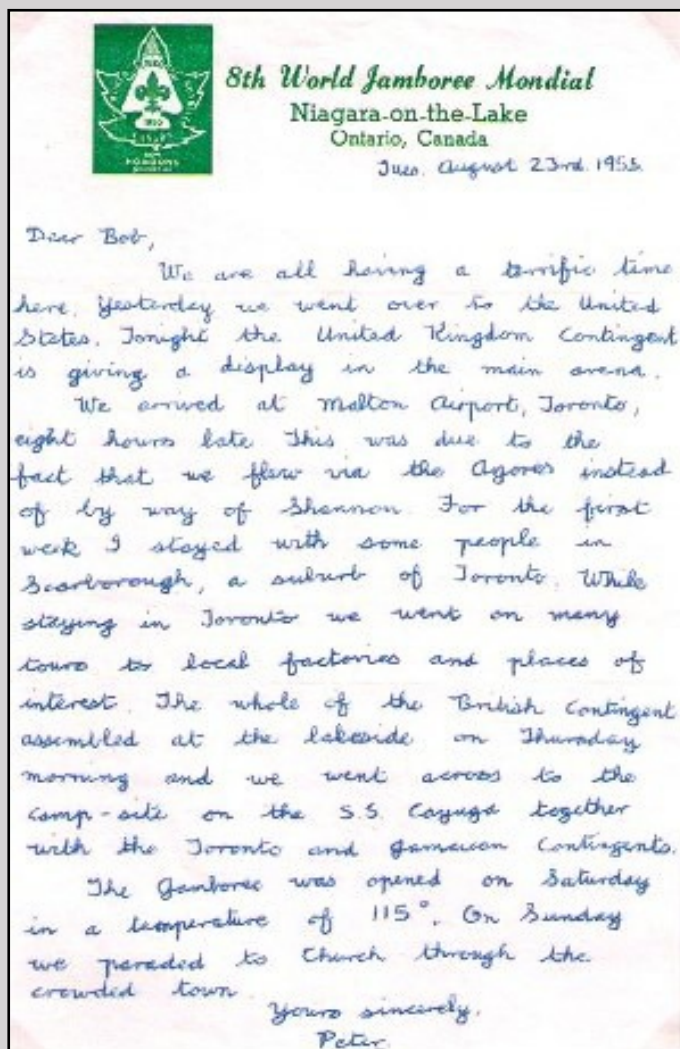 JAMBOREE
1955
CANADA
NEW
HORIZONS
8th World Jamboree Mondial
Niagara-on-the-Lake
Ontario, Canada
Tues. August 23rd. 1955.
Dear Bob,
We are all having a terrific time
here. Yesterday we went over to the United
States. Tonight the United Kingdom Contingent
is giving a display in the main arena.
We arrived at Malton Airport, Toronto,
eight hours late. This was due to the
fact that we flew via the Azores instead
of by way of Shannon. For the first
week I stayed with some people in
Scarborough, a suburb of Toronto. While
staying in Toronto we went on many
tours to local factories and places of
interest. The whole of the British Contingent
assembled at the lakeside on Thursday
morning and we went across to the
camp-site on the S.S. Cayuga together
with the Toronto and Jamaican Contingents.
The Jamboree was opened on Saturday
in a temperature of 115°. On Sunday
we paraded to Church through the
crowded town.
Yours sincerely,
Peter.